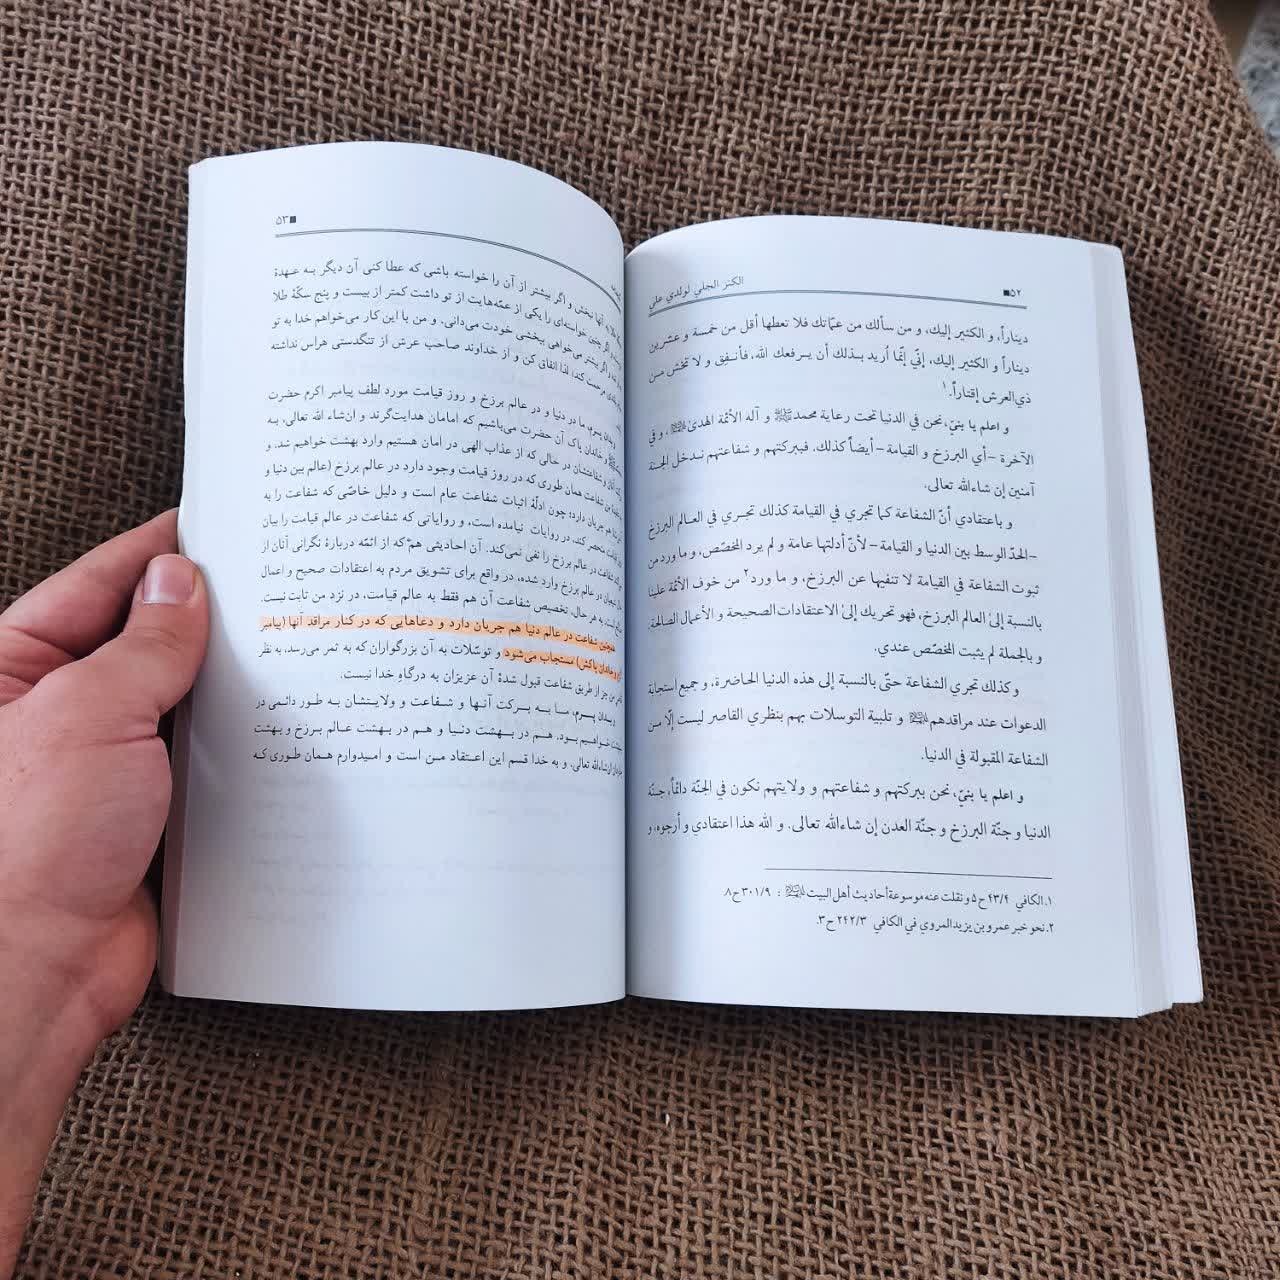 ۵۲■
الكنز الجلي لولدي علي
ديناراً، و الكثير إليك، و من سألك من عمّاتك فلا تعطها أقل من خمسة و عشرين
ديناراً و الكثير إليك، إنّي إنّما اُريد بـذلك أن يـرفعك الله، فأنـفِق و لا تخش مـن
ذي‌العرش إقتاراً.۱
و اعلم يا بنيّ، نحن في الدنيا تحت رعاية محمدﷺ و آله الأئمة الهدى، و في
الآخرة -أي البرزخ و القيامة- أيضاً كذلك. فببركتهم و شفاعتهم نـدخل الجنة
آمنين إن شاءالله تعالى.
و باعتقادي أنّ الشفاعة كما تجري في القيامة كذلك تجـري في العـالم البرزخ
-الحدّ الوسط بين الدنيا و القيامة- لأنّ أدلتها عامة و لم يرد المخصّص، و ما ورد من
ثبوت الشفاعة في القيامة لا تنفيها عن البرزخ، و ما ورد۲ من خوف الأئمة علينا
بالنسبة إلىٰ العالم البرزخ، فهو تحريك إلىٰ الاعتقادات الصحيحة و الأعمال الصالحة.
و بالجملة لم يثبت المخصّص عندي.
و كذلك تجري الشفاعة حتّى بالنسبة إلى هذه الدنيا الحاضرة، و جميع استجابة
الدعوات عند مراقدهم و تلبية التوسلات بهم بنظري القاصر ليست إلّا مـن
الشفاعة المقبولة في الدنيا.
و اعلم يا بنيّ، نحن ببركتهم و شفاعتهم و ولايتهم نكون في الجنّة دائماً، جـنّة
الدنيا و جنّة البرزخ و جنّة العدن إن شاءالله تعالى. و الله هذا اعتقادي و أرجوه، و
۱. الكافي ۴۳/۴ ح۵ و نقلت عنه موسوعة أحاديث أهل البيت : ۳۰۱/۹ ح۸
۲. نحو خبر عمرو بن يزيد المروي في الكافي ۲۴۲/۳ ح۳.
■۵۳
آنها ببخش و اگر بیشتر از آن را خواسته باشی که عطا کنی آن دیگر به عـهدۀ
و اگر چنین خواسته‌ای را یکی از عمّه‌هایت از تو داشت کمتر از بیست و پنج سکّۀ طلا
و اگر بیشتر می‌خواهی ببخشی خودت می‌دانی. و من با این کار می‌خواهم خدا به تو
مرحمت کند؛ لذا انفاق کن و از خداوند صاحب عرش از تنگدستی هراس نداشته
پسرم، ما در دنیا و در عالم برزخ و روز قیامت مورد لطف پیامبر اکرم حضرت
و خاندان پاک آن حضرت می‌باشیم که امامان هدایت‌گرند و ان‌شاء الله تعالی، بـه
و شفاعتشان در حالی که از عذاب الهی در امان هستیم وارد بهشت خواهیم شد. و
شفاعت همان طوری که در روز قیامت وجود دارد در عالم برزخ (عالم بین دنیا و
هم جریان دارد؛ چون ادلّۀ اثبات شفاعت عام است و دلیل خاصّی که شفاعت را به
منحصر کند، در روایات نیامده است، و روایاتی که شفاعت در عالم قیامت را بیان
شفاعت در عالم برزخ را نفی نمی‌کند. آن احادیثی هم که از ائمّه دربارۀ نگرانی آنان از
در عالم برزخ وارد شده، در واقع برای تشویق مردم به اعتقادات صحیح و اعمال
است. به هر حال، تخصیص شفاعت آن هم فقط به عالم قیامت، در نزد من ثابت نیست.
همچنین شفاعت در عالم دنیا هم جریان دارد و دعاهایی که در کنار مراقد آنها (پیامبر
و خاندان پاکش) مستجاب می‌شود و توسّلات به آن بزرگواران که به ثمر می‌رسد، به نظر
من جز از طریق شفاعت قبول شدۀ آن عزیزان به درگاهِ خدا نیست.
بـدان پسرم، مـا بـه بـرکت آنـها و شـفاعت و ولایـتشان بـه طور دائـمی در
بهشت خـواهـیم بـود، هـم در بـهشت دنـیا و هـم در بـهشت عـالم بـرزخ و بـهشت
ان‌شاءالله تعالی. و به خدا قسم این اعـتقاد مـن است و امـیدوارم همان طـوری کـه